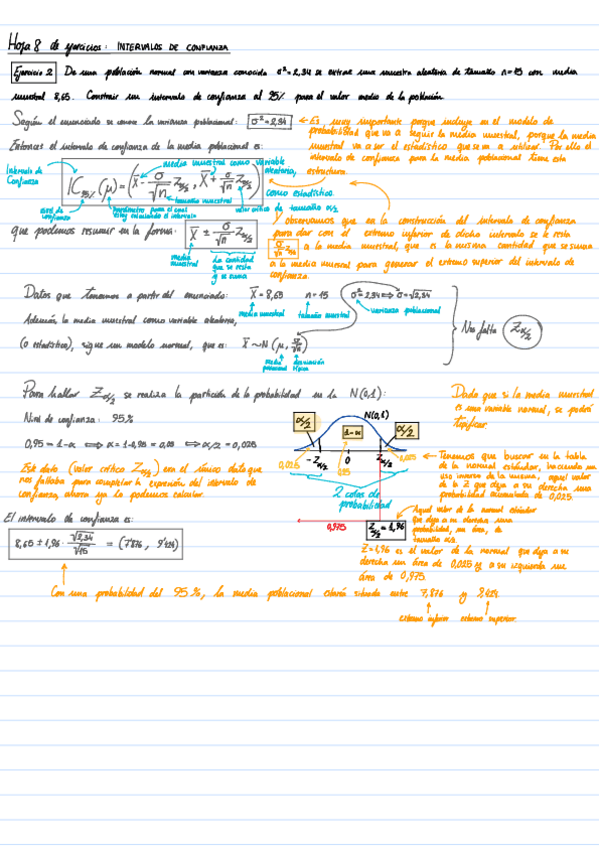 Hoja 8 de ejercicios: INTERVALOS DE CONFIANZA
Ejercicio 2 De una población normal con varianza conocida σ²=2,34 se extrae una muestra aleatoria de tamaño n=15 con media
muestral 8,65. Construir un intervalo de confianza al 95% para el valor medio de la población.
Según el enunciado se conoce la varianza poblacional: σ²=2,34
← Es muy importante porque incluye en el modelo de
probabilidad que va a seguir la media muestral, porque la media
muestral va a ser el estadístico que se va a utilizar. Por ello el
intervalo de confianza para la media poblacional tiene esta
estructura.
Entonces el intervalo de confianza de la media poblacional es:
Intervalo de
Confianza
media muestral como variable
aleatoria,
como estadístico.
IC95% (μ) = (X̄ - σ/√n Zα/2, X̄ + σ/√n Zα/2)
tamaño muestral
nivel de
confianza
parámetro para el cual
estoy calculando el intervalo
valor crítico de tamaño α/2
que podemos resumir en la forma: X̄ ± σ/√n Zα/2
media
muestral
La cantidad
que se resta
y se suma
observamos que en la construcción del intervalo de confianza
para dar con el extremo inferior de dicho intervalo se le resta
σ/√n Zα/2 a la media muestral, que es la misma cantidad que se suma
a la media muestral para generar el extremo superior del intervalo de
confianza.
Datos que tenemos a partir del enunciado: X̄ = 8,65 n = 15 σ²=2,34 ⟺ σ=√2,34
media muestral
tamaño muestral
varianza poblacional
Además, la media muestral como variable aleatoria,
(o estadístico), sigue un modelo normal, que es: X̄ ~ N(μ, σ/√n)
media
poblacional
desviación
típica
Nos falta Zα/2
Para hallar Zα/2 se realiza la partición de la probabilidad en la N(0,1):
Nivel de confianza: 95%
0,95 = 1-α ⟺ α = 1-0,95 = 0,05 ⟺ α/2 = 0,025
Este dato (valor crítico Zα/2) era el único dato que
nos faltaba para completar la expresión del intervalo de
confianza, ahora ya lo podemos calcular.
N(0,1)
α/2
1-α
α/2
0,025
0,95
0,025
-Zα/2
0
Zα/2
2 colas de
probabilidad
0,975
Zα/2 = 1,96
Dado que si la media muestral
es una variable normal, se podrá
tipificar.
← Tenemos que buscar en la tabla
de la normal estándar, haciendo un
uso inverso de la misma, aquel valor
de la Z que deja a su derecha una
probabilidad acumulada de 0,025
Aquel valor de la normal estándar
que deja a su derecha una
probabilidad, un área, de
tamaño α/2.
Z=1,96 es el valor de la normal que deja a su
derecha un área de 0,025 y a su izquierda un
área de 0,975.
El intervalo de confianza es:
8,65 ± 1,96 · √2,34/√15 = (7'876, 9'424)
Con una probabilidad del 95%, la media poblacional estará situada entre 7,876 y 9,424.
extremo inferior extremo superior